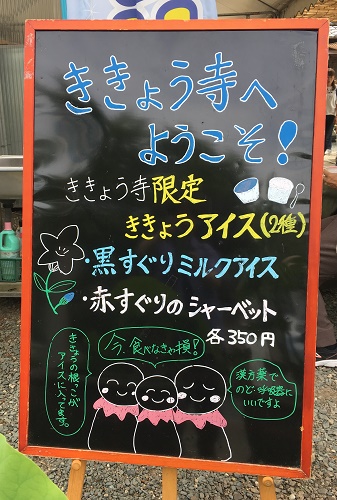 ききょう寺へ
ようこそ!
ききょう寺限定
ききょうアイス(2種)
・黒すぐりミルクアイス
・赤すぐりのシャーベット
各350円
ききょうの根っこが
アイスに入ってます。
今、食べなきゃ損!
漢方薬で
のど・呼吸器に
いいですよ